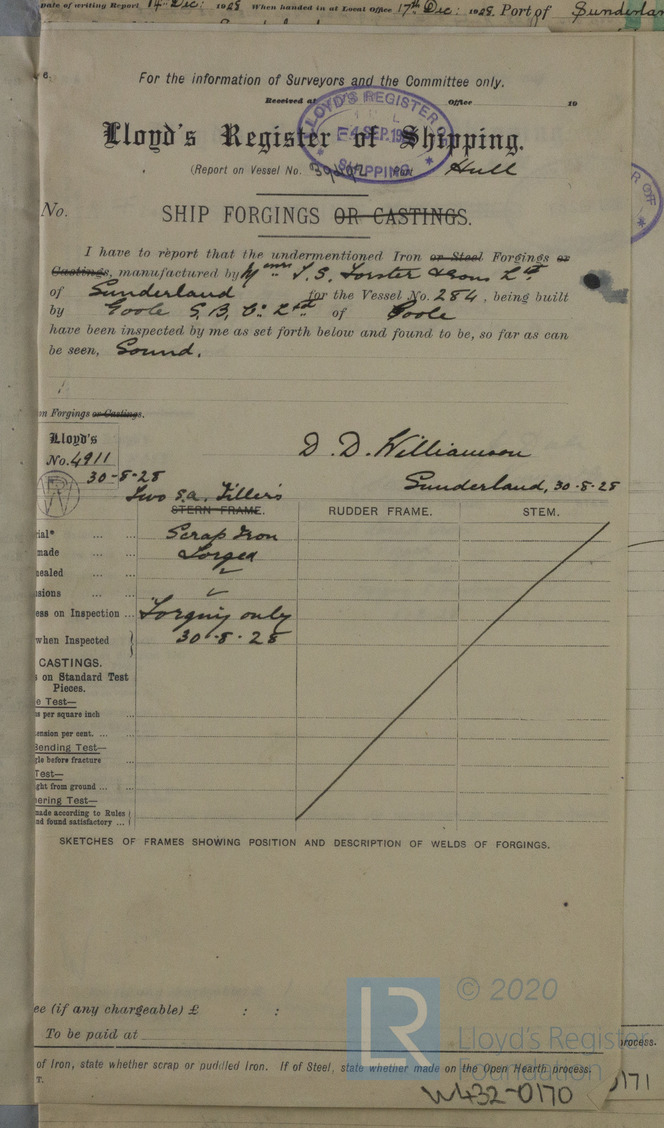 Date of writing Report 14th Dec: 1928 When handed in at Local Office 17th Dec: 1928 Port of Sunderla
6.
For the information of Surveyors and the Committee only.
Received at Office 19
LLOYD'S REGISTER OF SHIPPING 4 SEP. 19
Lloyd's Register of Shipping.
(Report on Vessel No. Hull
No.
SHIP FORGINGS OR CASTINGS.
I have to report that the undermentioned Iron or Steel Forgings or
Castings, manufactured by Messrs T. S. Forster & Sons Ld
of Sunderland for the Vessel No. 284, being built
by Goole S. B. Co. Ltd of Goole
have been inspected by me as set forth below and found to be, so far as can
be seen, Sound.
on Forgings or Castings.
Lloyd's
No. 4911
30-8-28
D. D. Williamson
Sunderland, 30-8-28
Two s.a. Tillers
STERN FRAME. RUDDER FRAME. STEM.
ial* ... ... Scrap Iron
made ... ... Forged
nealed ... ... ✓
nsions ... ... ✓
ess on Inspection ... Forging only
when Inspected } 30-8-28
CASTINGS.
s on Standard Test
Pieces.
e Test—
ns per square inch ...
ension per cent. ... ...
Bending Test—
gle before fracture ...
Test—
ght from ground ... ...
ering Test—
made according to Rules
nd found satisfactory ...
SKETCHES OF FRAMES SHOWING POSITION AND DESCRIPTION OF WELDS OF FORGINGS.
ee (if any chargeable) £ : :
To be paid at
process.
of Iron, state whether scrap or puddled Iron. If of Steel, state whether made on the Open Hearth process.
T.
LR © 2020
Lloyd's Register
Foundation
W432-0170
0171